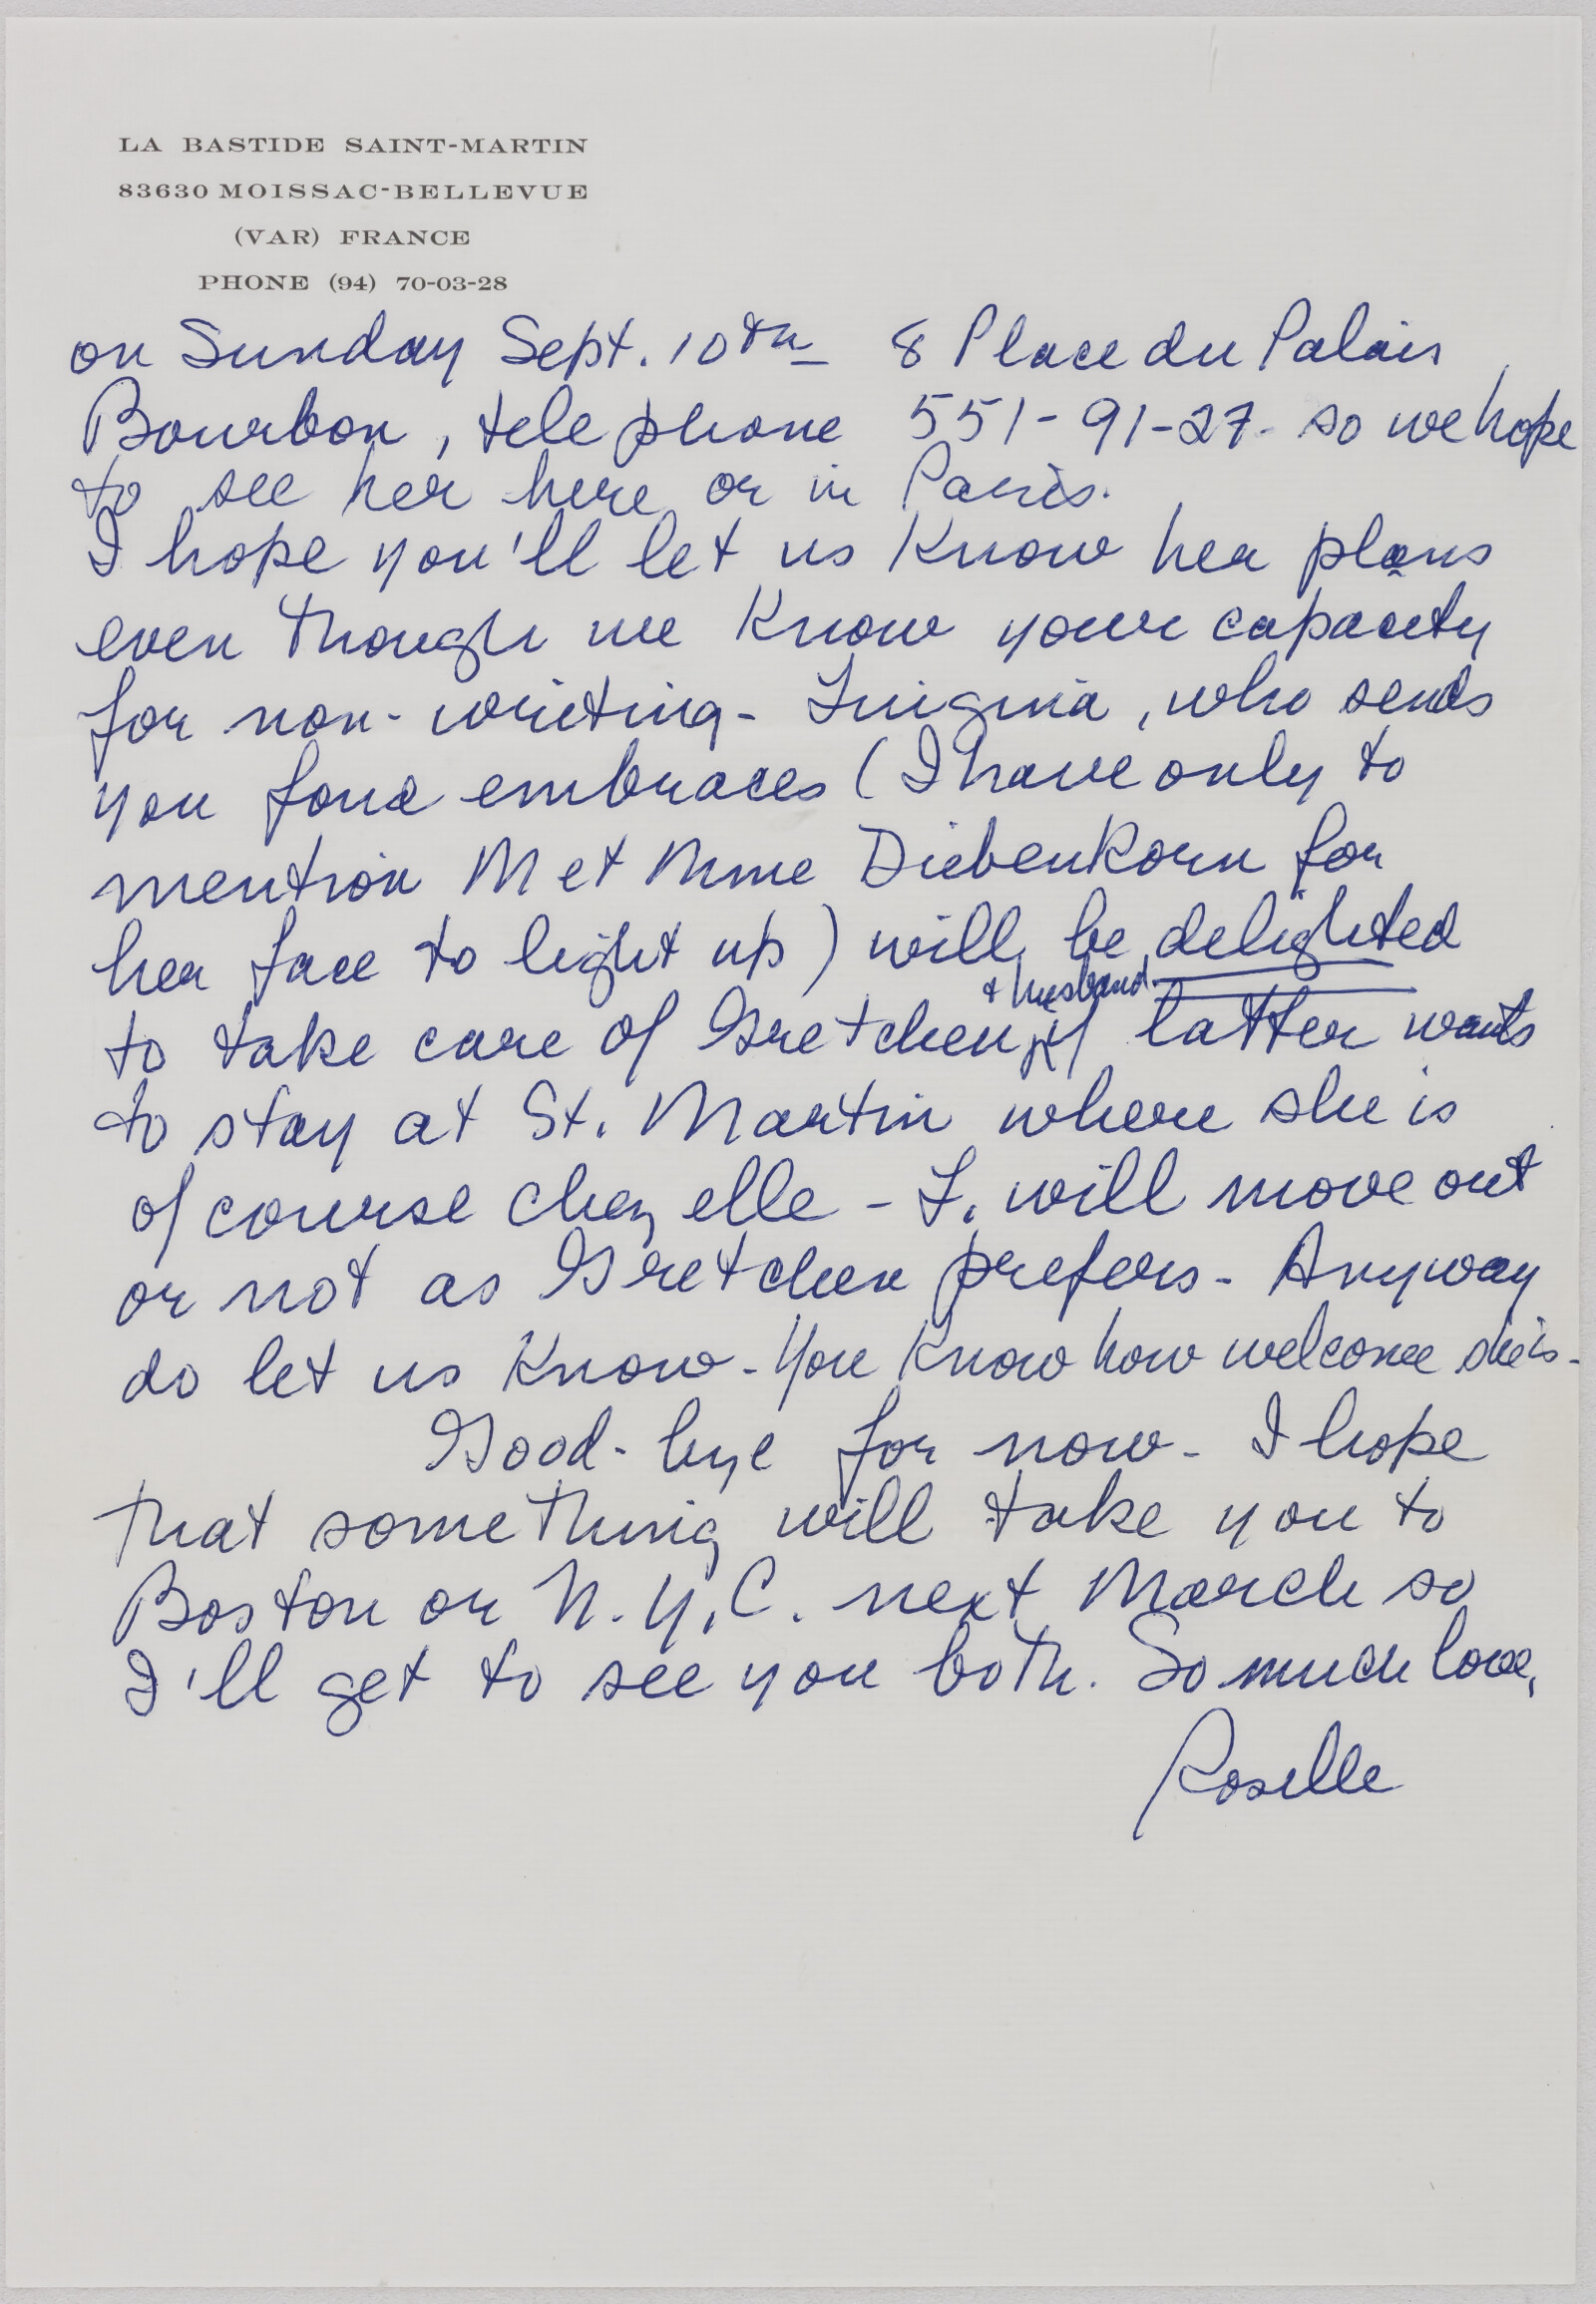 LA BASTIDE SAINT-MARTIN
83630 MOISSAC-BELLEVUE
(VAR) FRANCE
PHONE (94) 70-03-28
on Sunday Sept. 10th 8 Place du Palais
Bourbon, telephone 551-91-27- so we hope
to see her here or in Paris.
I hope you'll let us know her plans
even though we know your capacity
for non-writing- Luiginia, who sends
you fond embraces (I have only to
mention M et Mme Diebenkorn for
her face to light up) will be delighted
+ husband
to take care of Gretchen if latter wants
to stay at St. Martin where she is
of course chez elle - L. will move out
or not as Gretchen prefers- Anyway
do let us know- You know how welcome she is-
Good-bye for now- I hope
that something will take you to
Boston or N.Y.C. next March so
I'll get to see you both. So much love,
Roselle